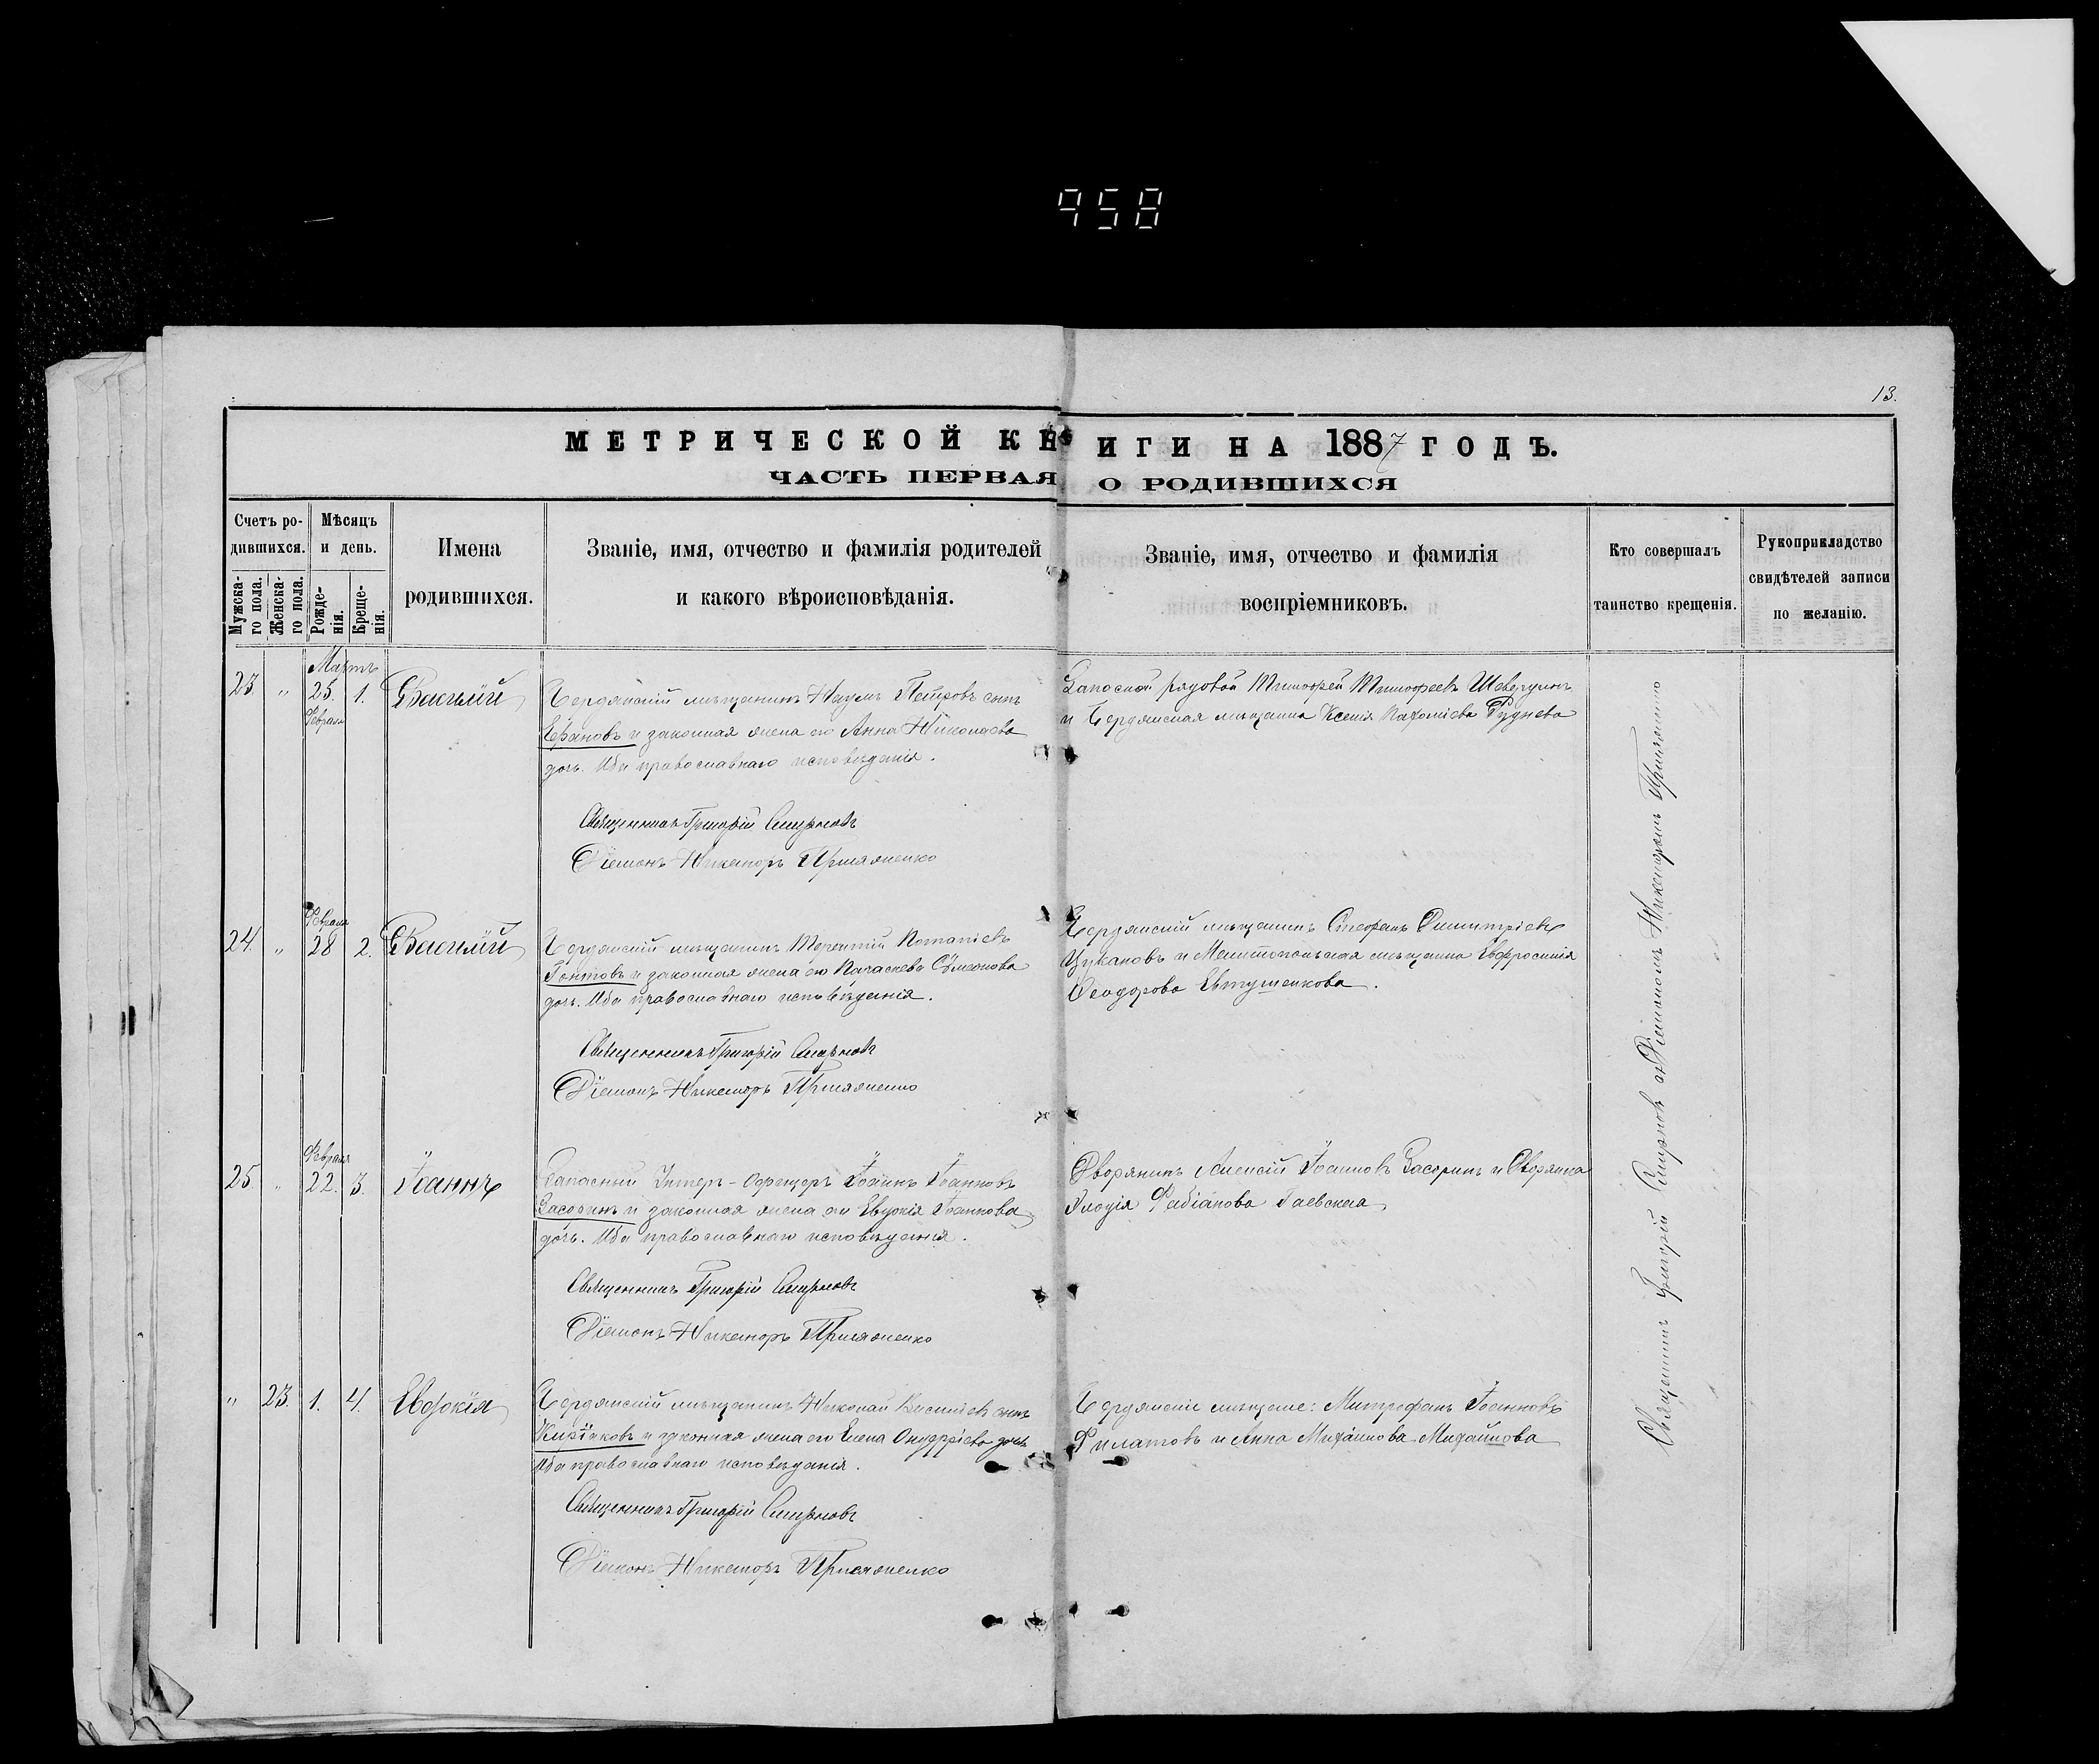 958
13.
МЕТРИЧЕСКОЙ КНИГИ НА 1887 ГОДЪ.
ЧАСТЬ ПЕРВАЯ О РОДИВШИХСЯ
Счетъ ро-
дившихся.
Мужска-
го пола.
Женска-
го пола.
Мѣсяцъ
и день.
Рожде-
нія.
Креще-
нія.
Имена
родившихся.
Званіе, имя, отчество и фамилія родителей
и какого вѣроисповѣданія.
Званіе, имя, отчество и фамилія
воспріемниковъ.
Кто совершалъ
таинство крещенія.
Рукоприкладство
свидѣтелей записи
по желанію.
Мартъ
23. " 25. 1. Василій
Февраля
Бердянскій мѣщанинъ Наумъ Петровъ сынъ
и законная жена его Анна Николаева
дочь. Оба православнаго исповѣданія.
Священникъ Григорій Смирновъ
Діаконъ Никаноръ Присяженко
Запасной рядовой Тимофей Тимофеевъ
и Бердянская мѣщанка Ксенія Руднева
Февраля
24. " 28 2. Василій
Бердянскій мѣщанинъ Терентій
и законная жена его Сѵмеонова
дочь. Оба православнаго исповѣданія.
Священникъ Григорій Смирновъ
Діаконъ Никаноръ Присяженко
Бердянскій мѣщанинъ Стефанъ Димитріевъ
Цукановъ и Мелитопольская мѣщанка Евфросинія
Ѳеодорова Евтушенкова.
Февраля
25. " 22. 3. Іоаннъ
Запасный Унтеръ-Офицеръ Іоаннъ Іоанновъ
Засоринъ и законная жена его Евдокія Іоаннова
дочь. Оба православнаго исповѣданія.
Священникъ Григорій Смирновъ
Діаконъ Никаноръ Присяженко
Дворянинъ Алексій Іоанновъ Засоринъ и Дворянка
Фабіанова Гаевская
" 23. 1. 4. Евдокія
Бердянскій мѣщанинъ Николай Василіевъ сынъ
Киріаковъ и законная жена его Елена дочь
Оба православнаго исповѣданія.
Священникъ Григорій Смирновъ
Діаконъ Никаноръ Присяженко
Бердянскіе мѣщане: Митрофанъ Іоанновъ
Филатовъ и Анна Михайлова Михайлова
Священникъ Григорій Смирновъ съ Діакономъ Никаноромъ Присяженко